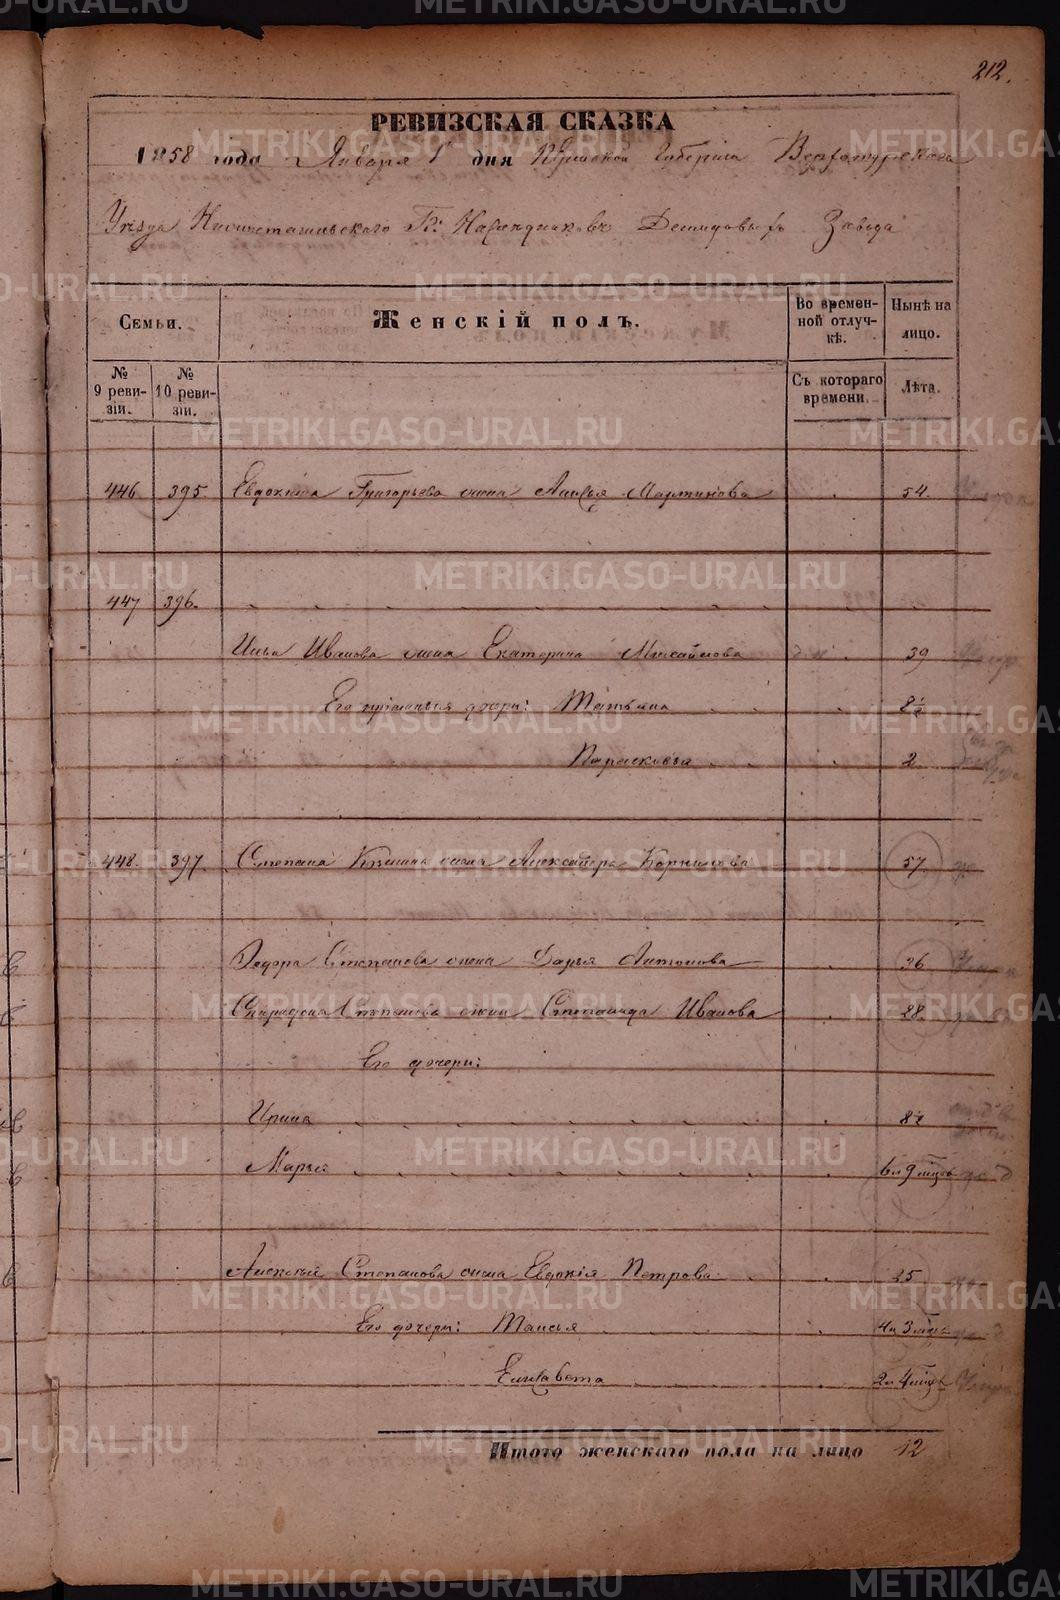 212.
РЕВИЗСКАЯ СКАЗКА
1858 года Января 1 дня Пермской Губерніи Верхотурскаго
Уезда Нижнетагильскаго Гг: Наследниковъ Демидовыхъ Завода
Семьи.
Женскій полъ.
Во временной отлучкѣ.
Нынѣ на лицо.
№ 9 ревизіи.
№ 10 ревизіи.
Съ котораго времени.
Лѣта.
446 395 Евдокима Григорьева жена Анисья Мартинова 54.
447 396.
Ильи Иванова жена Екатерина Михайлова 39
Его дочери: Татьяна 8½
Парасковья 2
448. 397. Степана жена Александра Корнилова 57
Федора Степанова жена Дарья Антонова 36
Спиридона Степанова жена Степанида Иванова 28
Его дочери:
Ирина 8½
Марья 6 л 9 мцов
Алексѣя Степанова жена Евдокія Петрова 25
Его дочери: Таисья 4 л 3 мцъ
Елисавета 2 л 4 мцъ
Итого женскаго пола на лицо 12
METRIKI.GASO-URAL.RU